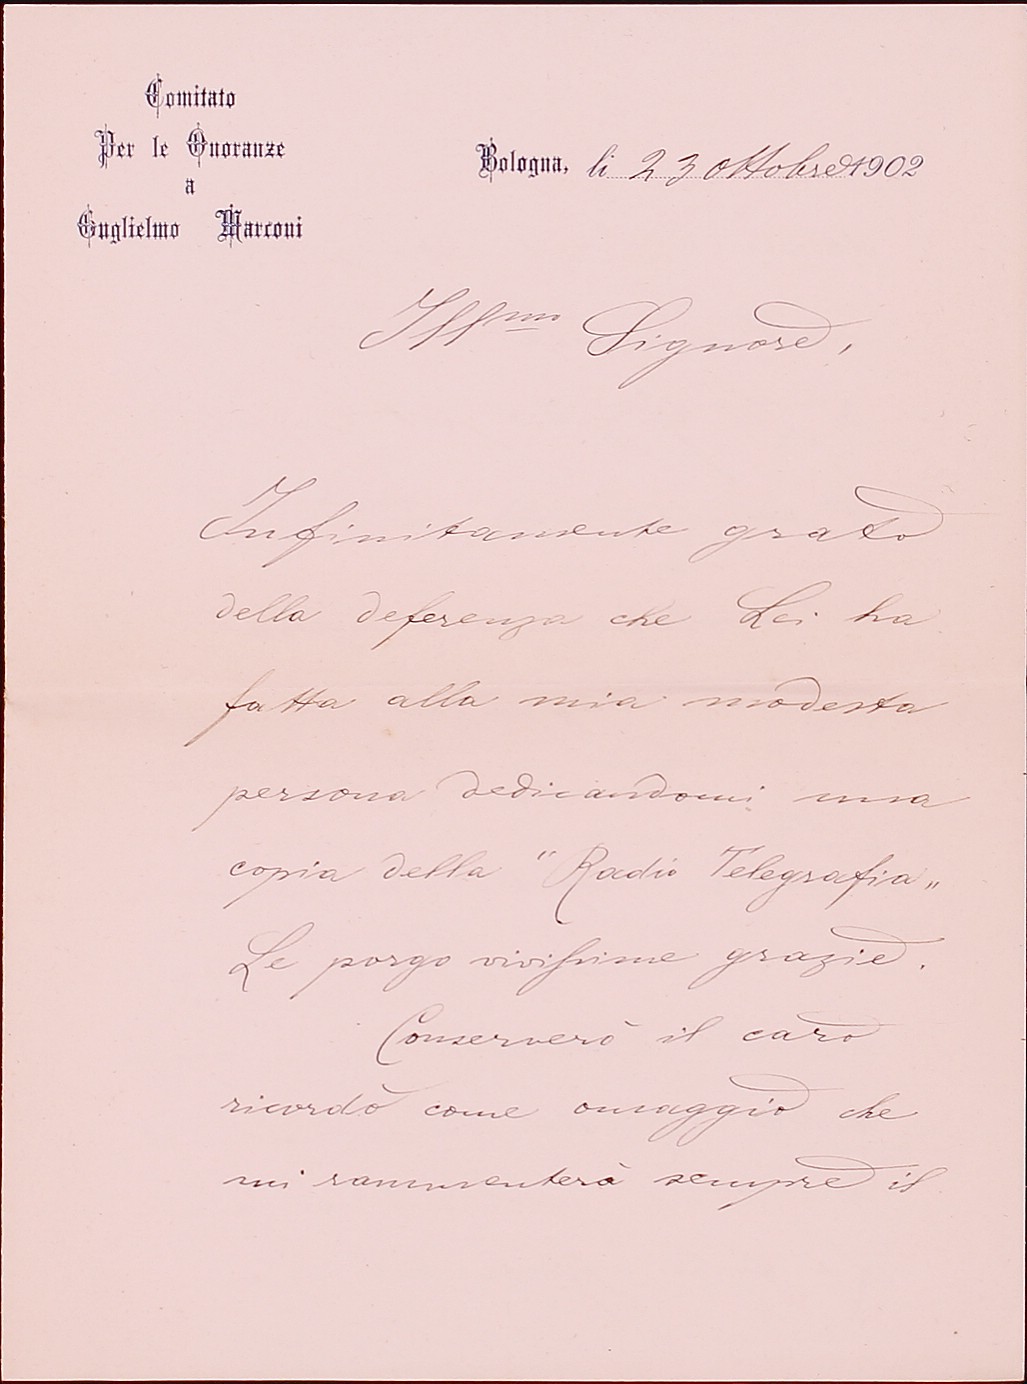 Comitato
Per le Onoranze
a
Guglielmo Marconi
Bologna, li 23 ottobre 1902
Ill.mo Signore,
Infinitamente grato
della deferenza che Lei ha
fatta alla mia modesta
persona dedicandomi una
copia della "Radio Telegrafia„
Le porgo vivissime grazie.
Conserverò il caro
ricordo come omaggio che
mi rammenterà sempre il